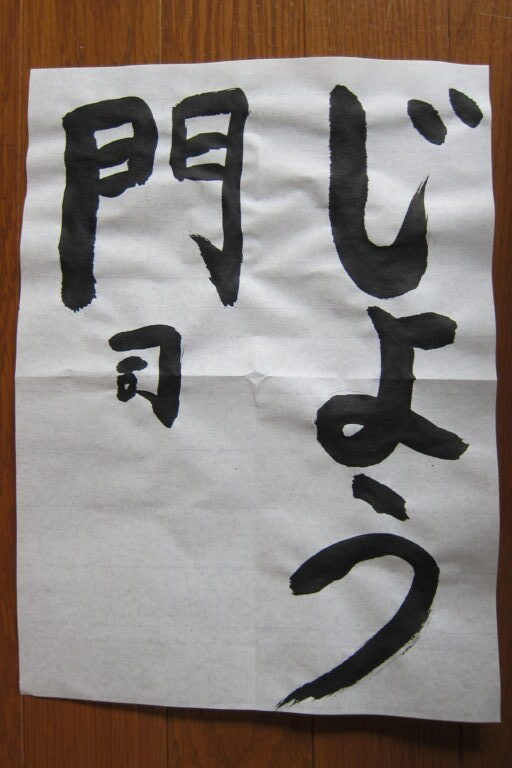 じょう
門司